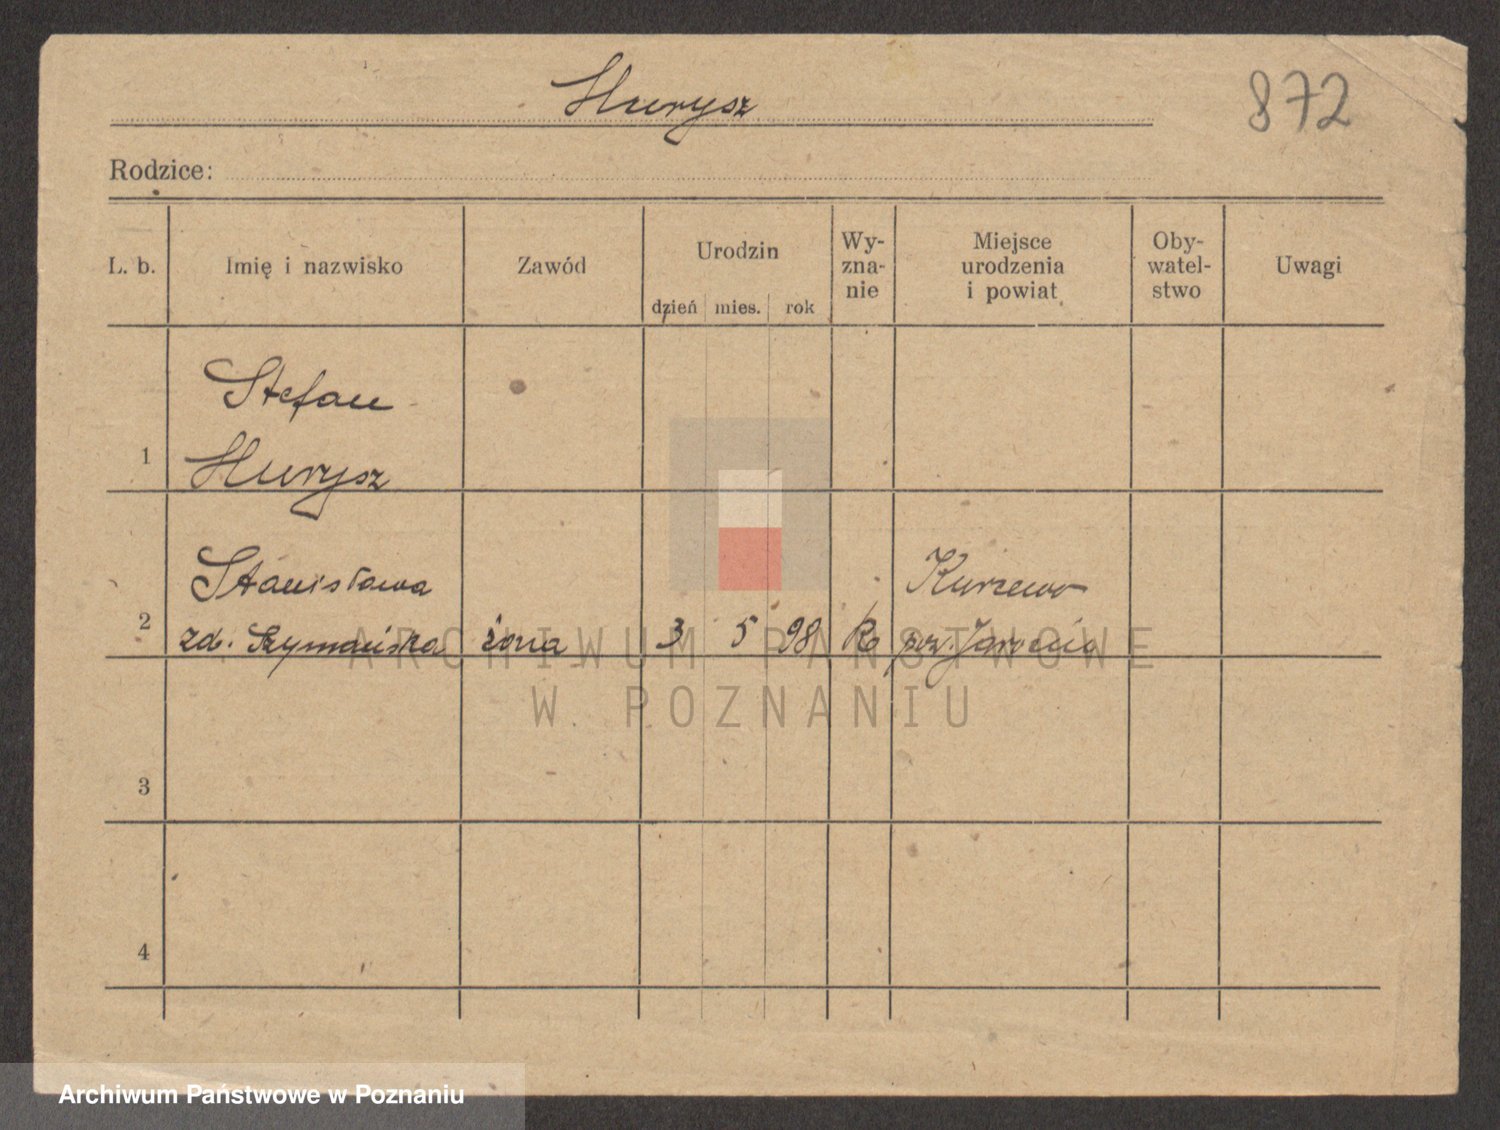 Hurysz
872
Rodzice:
L. b. Imię i nazwisko Zawód Urodzin Wy-zna-nie Miejsce urodzenia i powiat Oby-watel-stwo Uwagi
dzień mies. rok
Stefan
1 Hurysz
Stanisława Kurzewo
2 zd. Szymańska żona 3 5 98 Rz pow. Jarocin
3
4
ARCHIWUM PAŃSTWOWE
W POZNANIU
Archiwum Państwowe w Poznaniu